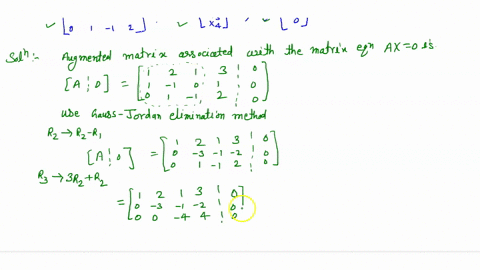 ✓ [0 1 -1 2] , ✓ [x4] , ✓ [0]
Solⁿ:- Augmented matrix associated with the matrix eqn AX=0 is
[A ¦ 0] = [1 2 1 3 ¦ 0
1 -1 0 1 ¦ 0
0 1 -1 2 ¦ 0]
use Gauss-Jordan elimination method
R2 → R2-R1
[A ¦ 0] = [1 2 1 3 ¦ 0
0 -3 -1 -2 ¦ 0
0 1 -1 2 ¦ 0]
R3 → 3R2+R2
= [1 2 1 3 ¦ 0
0 -3 -1 -2 ¦ 0
0 0 -4 4 ¦ 0]